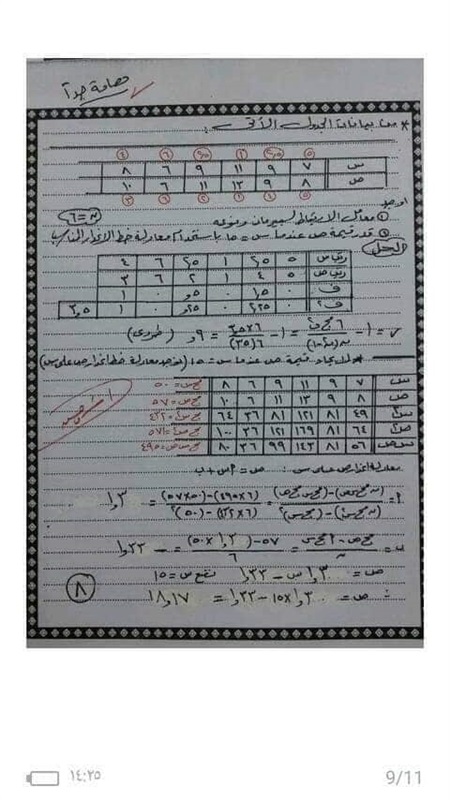 هامة جداً
* من بيانات الجدول الآتى :
٥ ٢٫٥ ١ ٢٫٥ ٦ ٤
س ٧ ٩ ١١ ٩ ٦ ٨
ص ٨ ٩ ١٣ ١١ ٦ ١٠
٥ ٤ ١ ٢ ٦ ٣
أوجد
① معامل الارتباط لسبيرمان ونوعه ن = ٦
② قدر قيمة ص عندما س = ١٥ باستخدام معادلة خط الانحدار المناسب
الحل
رتب س ٥ ٢٫٥ ١ ٢٫٥ ٦ ٤
رتب ص ٥ ٤ ١ ٢ ٦ ٣
ف ٠ ١٫٥ ٠ ٫٥ ٠ ١
ف٢ ٠ ٢٫٢٥ ٠ ٫٢٥ ٠ ١ ٣٫٥
ر = ١ - ٦ مجـ ف٢ / ن(ن٢-١) = ١ - ٦×٣٫٥ / ٦(٣٥) = ٫٩ (طردى)
* لايجاد قيمة ص عندما س = ١٥ (نوجد معادلة خط انحدار ص على س)
س ٧ ٩ ١١ ٩ ٦ ٨ مجـ س = ٥٠
ص ٨ ٩ ١٣ ١١ ٦ ١٠ مجـ ص = ٥٧
س٢ ٤٩ ٨١ ١٢١ ٨١ ٣٦ ٦٤ مجـ س٢ = ٤٣٢
ص٢ ٦٤ ٨١ ١٦٩ ١٢١ ٣٦ ١٠٠ مجـ ص٢ = ٥٧١
س ص ٥٦ ٨١ ١٤٣ ٩٩ ٣٦ ٨٠ مجـ س ص = ٤٩٥
معادلة انحدار ص على س : ص = أ س + ب
أ = (ن مجـ س ص) - (مجـ س مجـ ص) / (ن مجـ س٢) - (مجـ س)٢ = (٦×٤٩٥) - (٥٠×٥٧) / (٦×٤٣٢) - (٥٠)٢ = ١٫٣
ب = مجـ ص - أ مجـ س / ن = ٥٧ - (١٫٣ × ٥٠) / ٦ = - ١٫٣٣
ص = ١٫٣ س - ١٫٣٣ نضع س = ١٥
∴ ص = ١٫٣ × ١٥ - ١٫٣٣ = ١٨٫١٧
٨
١٤:٢٥
9/11